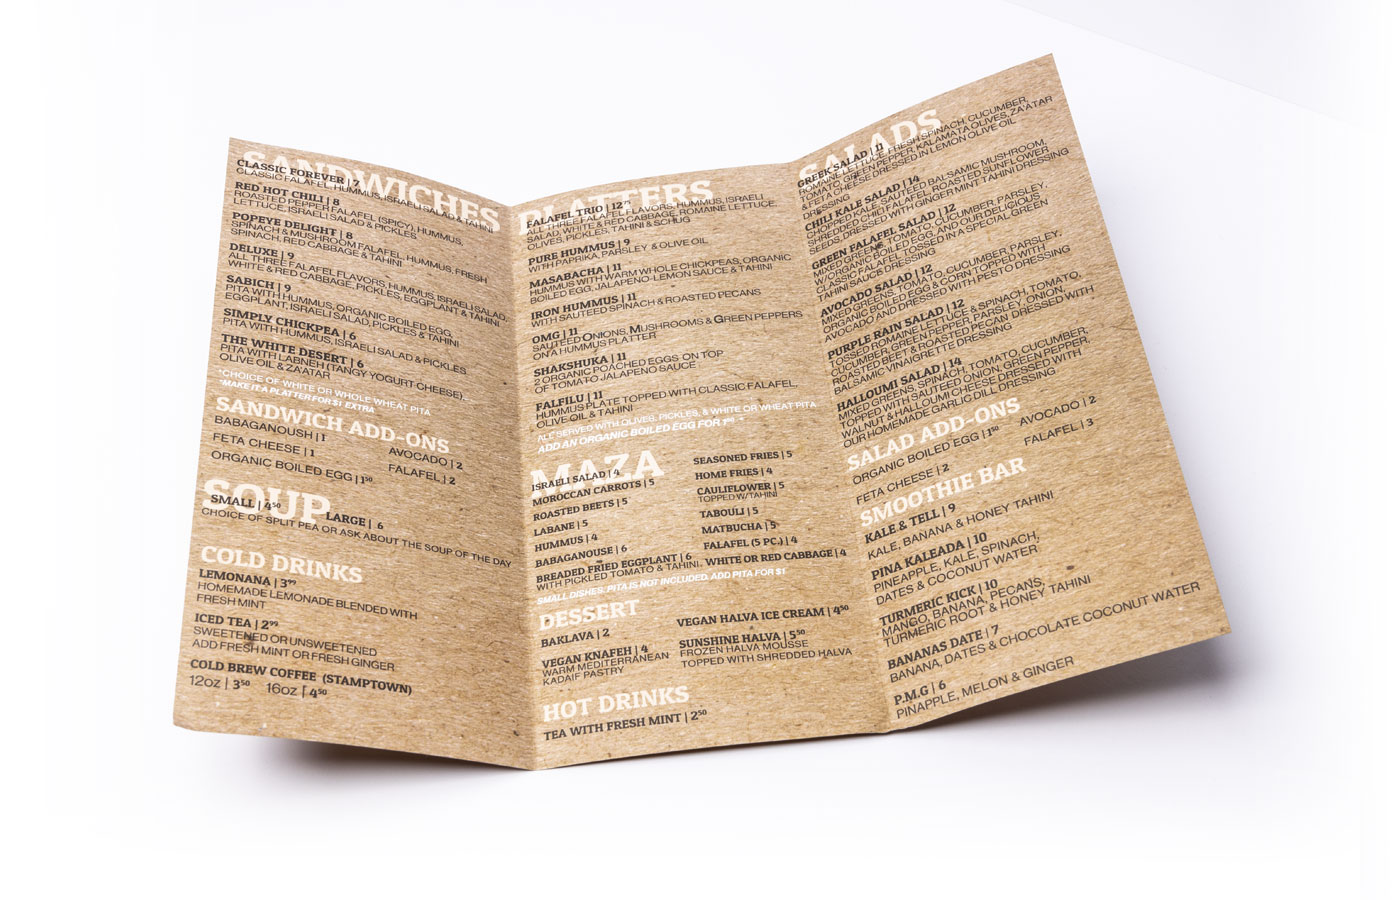 SANDWICHES
CLASSIC FOREVER | 7
CLASSIC FALAFEL, HUMMUS, ISRAELI SALAD & TAHINI
RED HOT CHILI | 8
ROASTED PEPPER FALAFEL (SPICY), HUMMUS,
LETTUCE, ISRAELI SALAD & PICKLES
POPEYE DELIGHT | 8
SPINACH & MUSHROOM FALAFEL, HUMMUS, FRESH
SPINACH, RED CABBAGE & TAHINI
DELUXE | 9
ALL THREE FALAFEL FLAVORS, HUMMUS, ISRAELI SALAD,
WHITE & RED CABBAGE, PICKLES, EGGPLANT & TAHINI
SABICH | 9
PITA WITH HUMMUS, ORGANIC BOILED EGG,
EGGPLANT, ISRAELI SALAD, PICKLES & TAHINI
SIMPLY CHICKPEA | 6
PITA WITH HUMMUS, ISRAELI SALAD & PICKLES
THE WHITE DESERT | 6
PITA WITH LABNEH (TANGY YOGURT CHEESE),
OLIVE OIL & ZA'ATAR
*CHOICE OF WHITE OR WHOLE WHEAT PITA
*MAKE IT A PLATTER FOR $1 EXTRA
SANDWICH ADD-ONS
BABAGANOUSH | 1
FETA CHEESE | 1
ORGANIC BOILED EGG | 1⁵⁰
AVOCADO | 2
FALAFEL | 2
SOUP
SMALL | 4⁵⁰ LARGE | 6
CHOICE OF SPLIT PEA OR ASK ABOUT THE SOUP OF THE DAY
COLD DRINKS
LEMONANA | 3⁹⁹
HOMEMADE LEMONADE BLENDED WITH
FRESH MINT
ICED TEA | 2⁹⁹
SWEETENED OR UNSWEETENED
ADD FRESH MINT OR FRESH GINGER
COLD BREW COFFEE (STAMPTOWN)
12OZ | 3⁵⁰ 16OZ | 4⁵⁰
PLATTERS
FALAFEL TRIO | 12
ALL THREE FALAFEL FLAVORS, HUMMUS, ISRAELI
SALAD, WHITE & RED CABBAGE, ROMAINE LETTUCE,
OLIVES, PICKLES, TAHINI & SCHUG
PURE HUMMUS | 9
WITH PAPRIKA, PARSLEY & OLIVE OIL
MASABACHA | 11
HUMMUS WITH WARM WHOLE CHICKPEAS, ORGANIC
BOILED EGG, JALAPENO-LEMON SAUCE & TAHINI
IRON HUMMUS | 11
WITH SAUTEED SPINACH & ROASTED PECANS
OMG | 11
SAUTEED ONIONS, MUSHROOMS & GREEN PEPPERS
ON A HUMMUS PLATTER
SHAKSHUKA | 11
2 ORGANIC POACHED EGGS ON TOP
OF TOMATO JALAPENO SAUCE
FALFILU | 11
HUMMUS PLATE TOPPED WITH CLASSIC FALAFEL,
OLIVE OIL & TAHINI
ALL SERVED WITH OLIVES, PICKLES, & WHITE OR WHEAT PITA
ADD AN ORGANIC BOILED EGG FOR 1⁵⁰
MAZA
ISRAELI SALAD | 4
MOROCCAN CARROTS | 5
ROASTED BEETS | 5
LABANE | 5
HUMMUS | 4
BABAGANOUSE | 6
BREADED FRIED EGGPLANT | 6
WITH PICKLED TOMATO & TAHINI
SEASONED FRIES | 5
HOME FRIES | 4
CAULIFLOWER | 5
TOPPED W/TAHINI
TABOULI | 5
MATBUCHA | 5
FALAFEL (5 PC.) | 4
WHITE OR RED CABBAGE | 4
SMALL DISHES. PITA IS NOT INCLUDED. ADD PITA FOR $1
DESSERT
BAKLAVA | 2
VEGAN KNAFEH | 4
WARM MEDITERRANEAN
KADAIF PASTRY
VEGAN HALVA ICE CREAM | 4⁵⁰
SUNSHINE HALVA | 5⁵⁰
FROZEN HALVA MOUSSE
TOPPED WITH SHREDDED HALVA
HOT DRINKS
TEA WITH FRESH MINT | 2⁵⁰
SALADS
GREEK SALAD | 11
ROMAINE LETTUCE, FRESH SPINACH, CUCUMBER,
TOMATO, GREEN PEPPER, KALAMATA OLIVES, ZA'ATAR
& FETA CHEESE DRESSED IN LEMON OLIVE OIL
DRESSING
CHILI KALE SALAD | 14
CHOPPED KALE, SAUTEED BALSAMIC MUSHROOM,
SHREDDED CHILI FALAFEL, ROASTED SUNFLOWER
SEEDS, DRESSED WITH GINGER MINT TAHINI DRESSING
GREEN FALAFEL SALAD | 12
MIXED GREENS, TOMATO, CUCUMBER, PARSLEY,
W/ORGANIC BOILED EGG, AND OUR DELICIOUS
CLASSIC FALAFEL, TOSSED IN A SPECIAL GREEN
TAHINI SAUCE DRESSING
AVOCADO SALAD | 12
MIXED GREENS, TOMATO, CUCUMBER, PARSLEY,
ORGANIC BOILED EGG & CORN TOPPED WITH
AVOCADO AND DRESSED WITH PESTO DRESSING
PURPLE RAIN SALAD | 12
TOSSED ROMAINE LETTUCE & SPINACH, TOMATO,
CUCUMBER, GREEN PEPPER, PARSLEY, ONION,
ROASTED BEET & ROASTED PECAN DRESSED WITH
BALSAMIC VINAIGRETTE DRESSING
HALLOUMI SALAD | 14
MIXED GREENS, SPINACH, TOMATO, CUCUMBER,
TOPPED WITH SAUTEED ONION, GREEN PEPPER,
WALNUT & HALLOUMI CHEESE DRESSED WITH
OUR HOMEMADE GARLIC DILL DRESSING
SALAD ADD-ONS
ORGANIC BOILED EGG | 1⁵⁰
FETA CHEESE | 2
AVOCADO | 2
FALAFEL | 3
SMOOTHIE BAR
KALE & TELL | 9
KALE, BANANA & HONEY TAHINI
PINA KALEADA | 10
PINEAPPLE, KALE, SPINACH,
DATES & COCONUT WATER
TURMERIC KICK | 10
MANGO, BANANA, PECANS,
TURMERIC ROOT & HONEY TAHINI
BANANAS DATE | 7
BANANA, DATES & CHOCOLATE COCONUT WATER
P.M.G | 6
PINAPPLE, MELON & GINGER